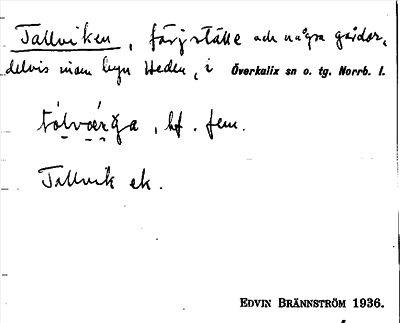 Tallviken, färjställe och några gårdar,
delvis inom byn Heden, i Överkalix sn o. tg. Norrb. l.
bf. fem.
Tallvik ek.
EDVIN BRÄNNSTRÖM 1936.